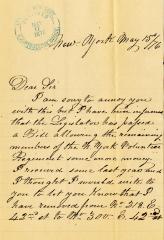 New York May 15/76
Dear Sir
I am sorry to annoy you
with this but I have been informed
that the Legislator has passed
a Bill allowing the remaining
members of the Volunteer
Regiment some more money.
I received some last year and
I thought I would write to
you to let you know that I
have removed from No. 218. E.
42nd st to No. 300. E. 42nd